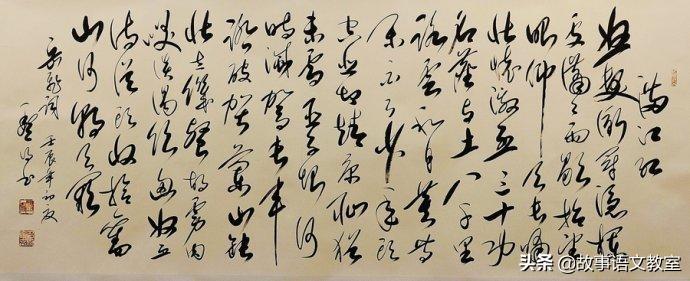 满江红
怒发冲冠凭栏
处潇潇雨歇抬望
眼仰天长啸
壮怀激烈三十功
名尘与土八千里
路云和月莫等
闲白了少年头
空悲切靖康耻犹
未雪臣子恨何
时灭驾长车
踏破贺兰山缺
壮志饥餐胡虏肉
笑谈渴饮匈奴血
待从头收拾旧
山河朝天阙
岳飞词 壬辰年初夏
头条 @故事语文教室